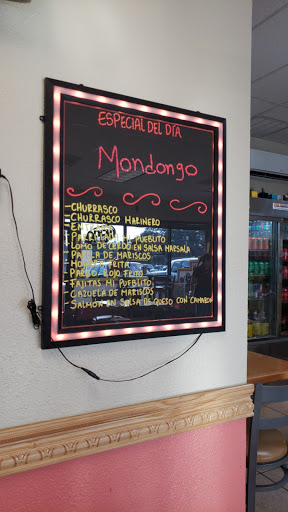 ESPECIAL DEL DIA
Mondongo
-CHURRASCO
-CHURRASCO MARINERO
-ENTRAÑA
-PARRILLADA MI PUEBLITO
-LOMO DE CERDO EN SALSA MARSALA
-PAELLA DE MARISCOS
-MOJARRA FRITA
-PARGO ROJO FRITO
-FAJITAS MI PUEBLITO
-CAZUELA DE MARISCOS
-SALMON EN SALSA DE QUESO CON CAMARON